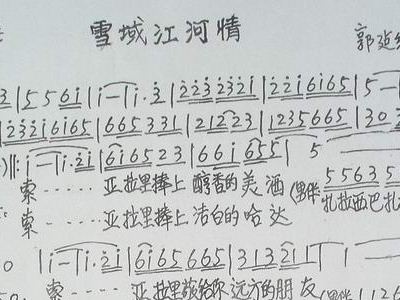 雪域江河情 郭
3 | 5 5 6 i | i — | i · 3 | 2 2 3 2 3 2 i | 2 2 i 6 i 6 5 | 5 —
| 2 3 2 i 6 i 6 5 | 6 6 5 3 3 1 | 2 1 2 2 3 | 1 2 3 5 6 6 5 | 3 0 3
) ‖: i — | i · 2 i | 6 i 6 5 2 3 | 6 6 i 6 5 5 | 5 — 5 5 6 3 5
索 …… 亚拉里捧上 醇香的 美 酒 (男伴 扎拉西巴扎
索 …… 亚拉里捧上 洁白的 哈 达
0 | i — | i · 2 i | 6 i 6 5 6 6 5 | 3 1 3 2 1 | 1 — | 1
索 …… 亚拉里 给你 远方的 朋 友 1 1 2 6